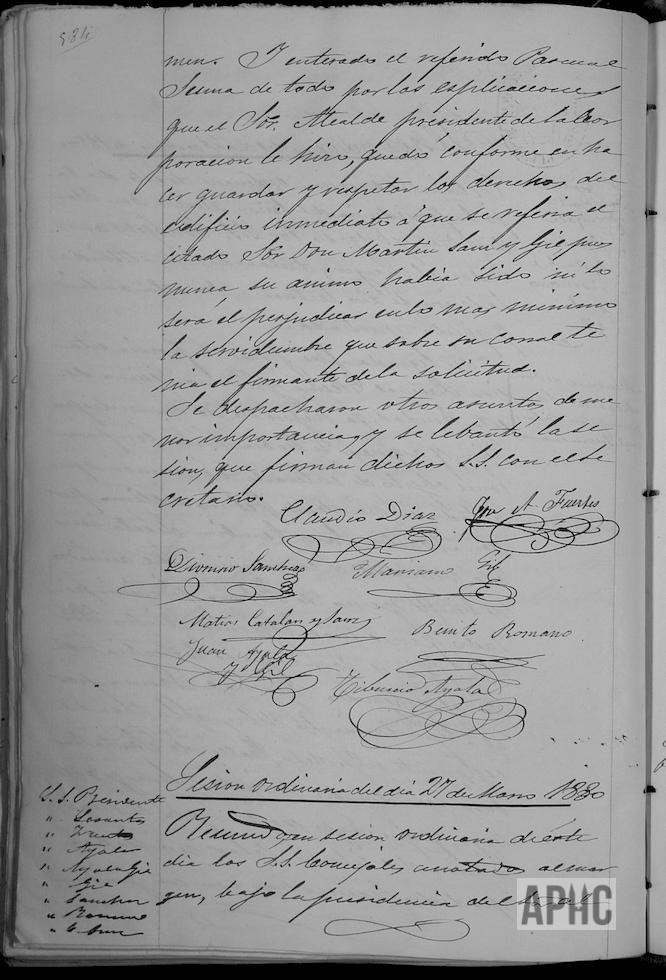 584
men. Y enterado el referido Pascual
Sesma de todo por las esplicaciones
que el Sor. Alcalde presidente de la Cor
poracion le hizo, quedó conforme en ha
cer guardar y respetar los derechos del
edificio inmediato á que se referia el
citado Sor Don Martin Sanz y Gil, pues
nunca su animo habia sido ni lo
será el perjudicar en lo mas minimo
la servidumbre que sobre su corral te
nia el firmante de la solicitud.
Se despacharon otros asuntos de me
nor importancia, y se lebantó la se
sion, que firman dichos S.S. con el Se
cretario.
Claudio Diaz
A. Fuertes
Dionisio Sanchez
Mariano Gil
Matias Catalan y Sanz
Benito Romano
Juan Ayala
y Gil
Tiburcio Ayala
Sesion ordinaria del dia 27 de Marzo 1880
S. S. Presidente
" Fuertes
" Ayala
" Ayala Gil
" Gil
" Sanchez
" Romano
Reunidos en sesion ordinaria de este
dia los S.S. Concejales anotados al mar
gen, bajo la presidencia del
APHC